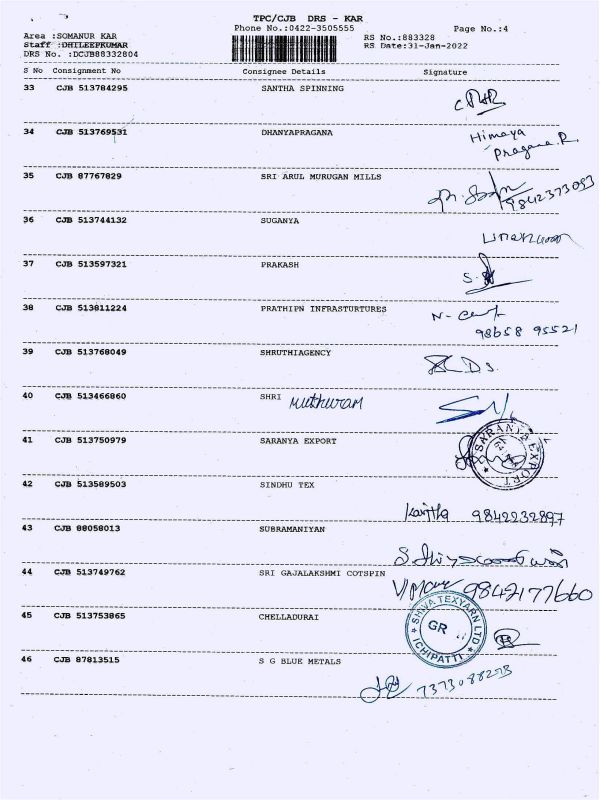 TPC/CJB DRS - KAR
Phone No.:0422-3505555 Page No.:4
Area :SOMANUR KAR RS No.:883328
Staff :DHILEEPKUMAR RS Date:31-Jan-2022
DRS No. :DCJB88332804
S No Consignment No Consignee Details Signature
33 CJB 513784295 SANTHA SPINNING
34 CJB 513769531 DHANYAPRAGANA Himaya
Pragana.R
35 CJB 87767829 SRI ARUL MURUGAN MILLS
9842373093
36 CJB 513744132 SUGANYA
37 CJB 513597321 PRAKASH
38 CJB 513811224 PRATHIPN INFRASTURTURES
98658 95521
39 CJB 513768049 SHRUTHIAGENCY
40 CJB 513466860 SHRI Muthuram
41 CJB 513750979 SARANYA EXPORT SARANYA EXPORT
42 CJB 513589503 SINDHU TEX
Kavitha 9842232897
43 CJB 88058013 SUBRAMANIYAN
44 CJB 513749762 SRI GAJALAKSHMI COTSPIN
9842177660
45 CJB 513753865 CHELLADURAI SHIVA TEXYARN LTD GR ICHIPATTI
46 CJB 87813515 S G BLUE METALS
7373088273